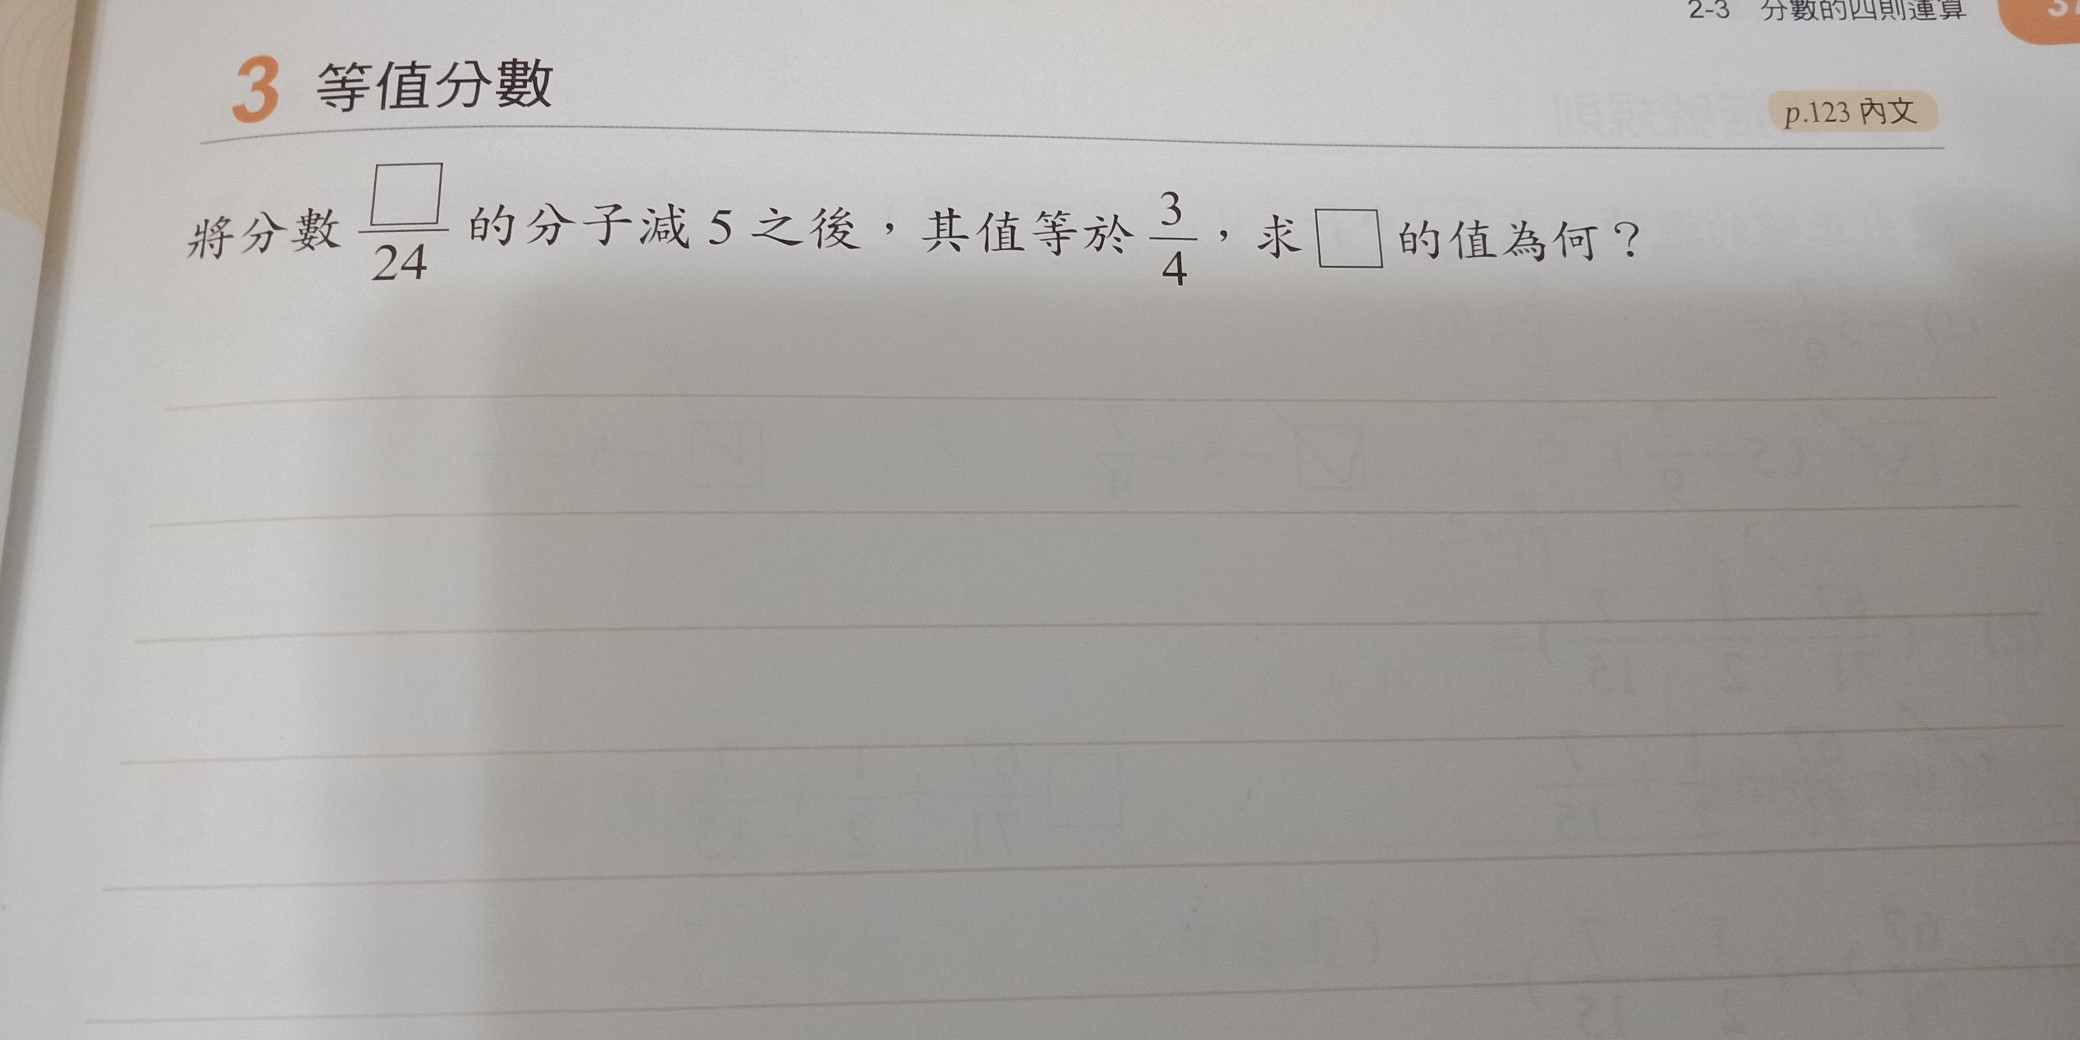 2-3 分數的四則運算
3 等值分數
p.123 內文
將分數 □/24 的分子減 5 之後，其值等於 3/4，求 □ 的值為何？